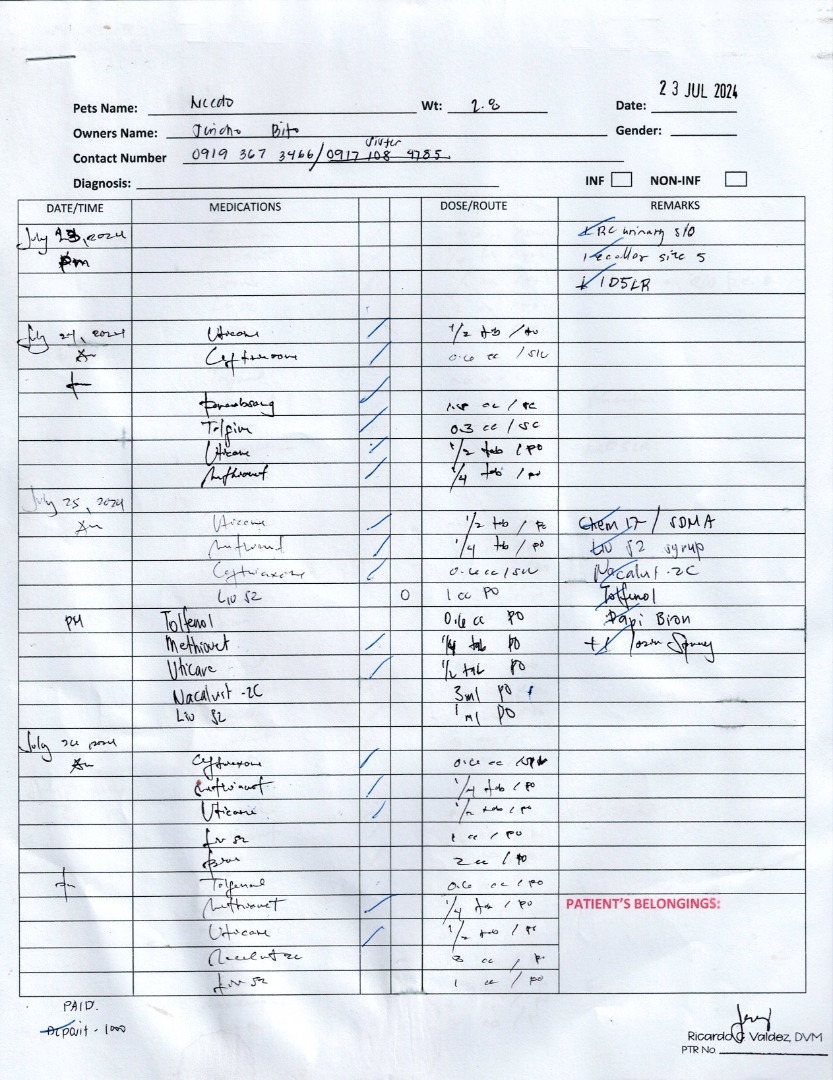 23 JUL 2024
Pets Name: Wt: 2.8 Date:
Owners Name: Jericho Bito Gender:
Sister
Contact Number 0919 367 3466/0917 108 4785
Diagnosis: INF NON-INF
DATE/TIME MEDICATIONS DOSE/ROUTE REMARKS
July 23, 2024 1 RC urinary s/o
pm 1 ecollar size 5
1 D5LR
July 24, 2024 Uticare 1/2 tab / po
Am Ceftriaxone 0.6 cc / SIV
0.3 cc / SC
Uticare 1/2 tab / po
Methiovet 1/4 tab / po
July 25, 2024
Am Uticare 1/2 tab / po Chem 17 / SDMA
Methiovet 1/4 tab / po Liv 52 syrup
Ceftriaxone 0.6 cc / SIV Nacalvit -2C
Liv 52 O 1 cc PO Tolfenol
PM Tolfenol 0.6 cc PO Papi Biron
Methiovet 1/4 tab PO
Uticare 1/2 tab PO
Nacalvit -2C 3ml PO
Liv 52 1 ml PO
July 26 2024
Am Ceftriaxone 0.6 cc
Methiovet 1/4 tab / po
Uticare 1/2 tab / po
Liv 52 1 cc / po
2 cc / po
Tolfenol 0.6 cc / po
Methiovet 1/4 tab / po PATIENT'S BELONGINGS:
Uticare 1/2 tab / po
Nacalvit 2c 3 cc / po
Liv 52 1 cc / po
PAID.
Deposit - 1000
Ricardo G Valdez, DVM
PTR No.